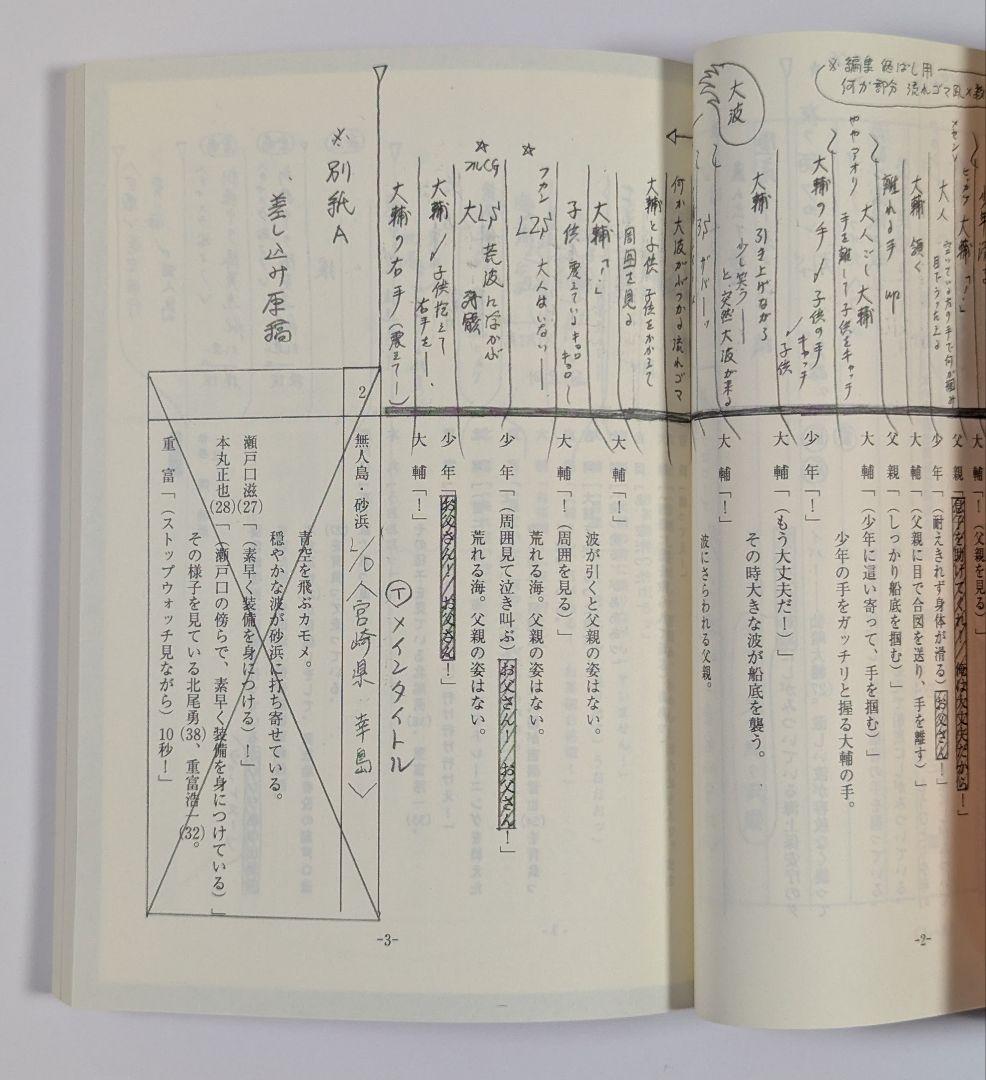 ※編集 延ばし用
何か部分 流れゴマ
大波
大人
大輔 頷く
離れる手 up
大人ごし大輔
ややアオリ 手を離して子供をキャッチ
大輔の手/子供の手
キャッチ
子供
大輔 引き上げながら
少し笑う―
と突然大波が来る
ザバーッ
何か大波がぶつかる流れゴマ
大輔と子供 子供をかかえて
周囲を見る
大輔「!」
子供 震えている キョロキョロ―
☆
フカン 大人はいない―
☆
フルCG
大LS 荒波にうかぶ
大輔/子供抱えて
右手を―
大輔の右手(震えて―)
※別紙A
差し込み原稿
大 輔「!」
父 親「息子を助けてくれ! 俺は大丈夫だから!」
少 年「(耐えきれず身体が滑る)お父さん!」
大 輔「(父親に目で合図を送り、手を離す)」
父 親「(しっかり船底を掴む)」
大 輔「(少年に這い寄って、手を掴む)」
少年の手をガッチリと握る大輔の手。
少 年「!」
大 輔「(もう大丈夫だ!)」
その時大きな波が船底を襲う。
大 輔「!」
波にさらわれる父親。
-2-
大 輔「!」
波が引くと父親の姿はない。
大 輔「!(周囲を見る)」
荒れる海。父親の姿はない。
少 年「(周囲見て泣き叫ぶ)お父さん! お父さん!」
荒れる海。父親の姿はない。
少 年「お父さん! お父さん!」
大 輔「!」
Ⓣメインタイトル
2 無人島・砂浜 L/O 〈宮崎県 幸島〉
青空を飛ぶカモメ。
穏やかな波が砂浜に打ち寄せている。
瀬戸口滋(27)「(素早く装備を身につける)!」
本丸正也(28)「(瀬戸口の傍らで、素早く装備を身につけている)」
その様子を見ている北尾勇(38)、重富浩一(32)。
重 富「(ストップウォッチ見ながら)10秒!」
-3-